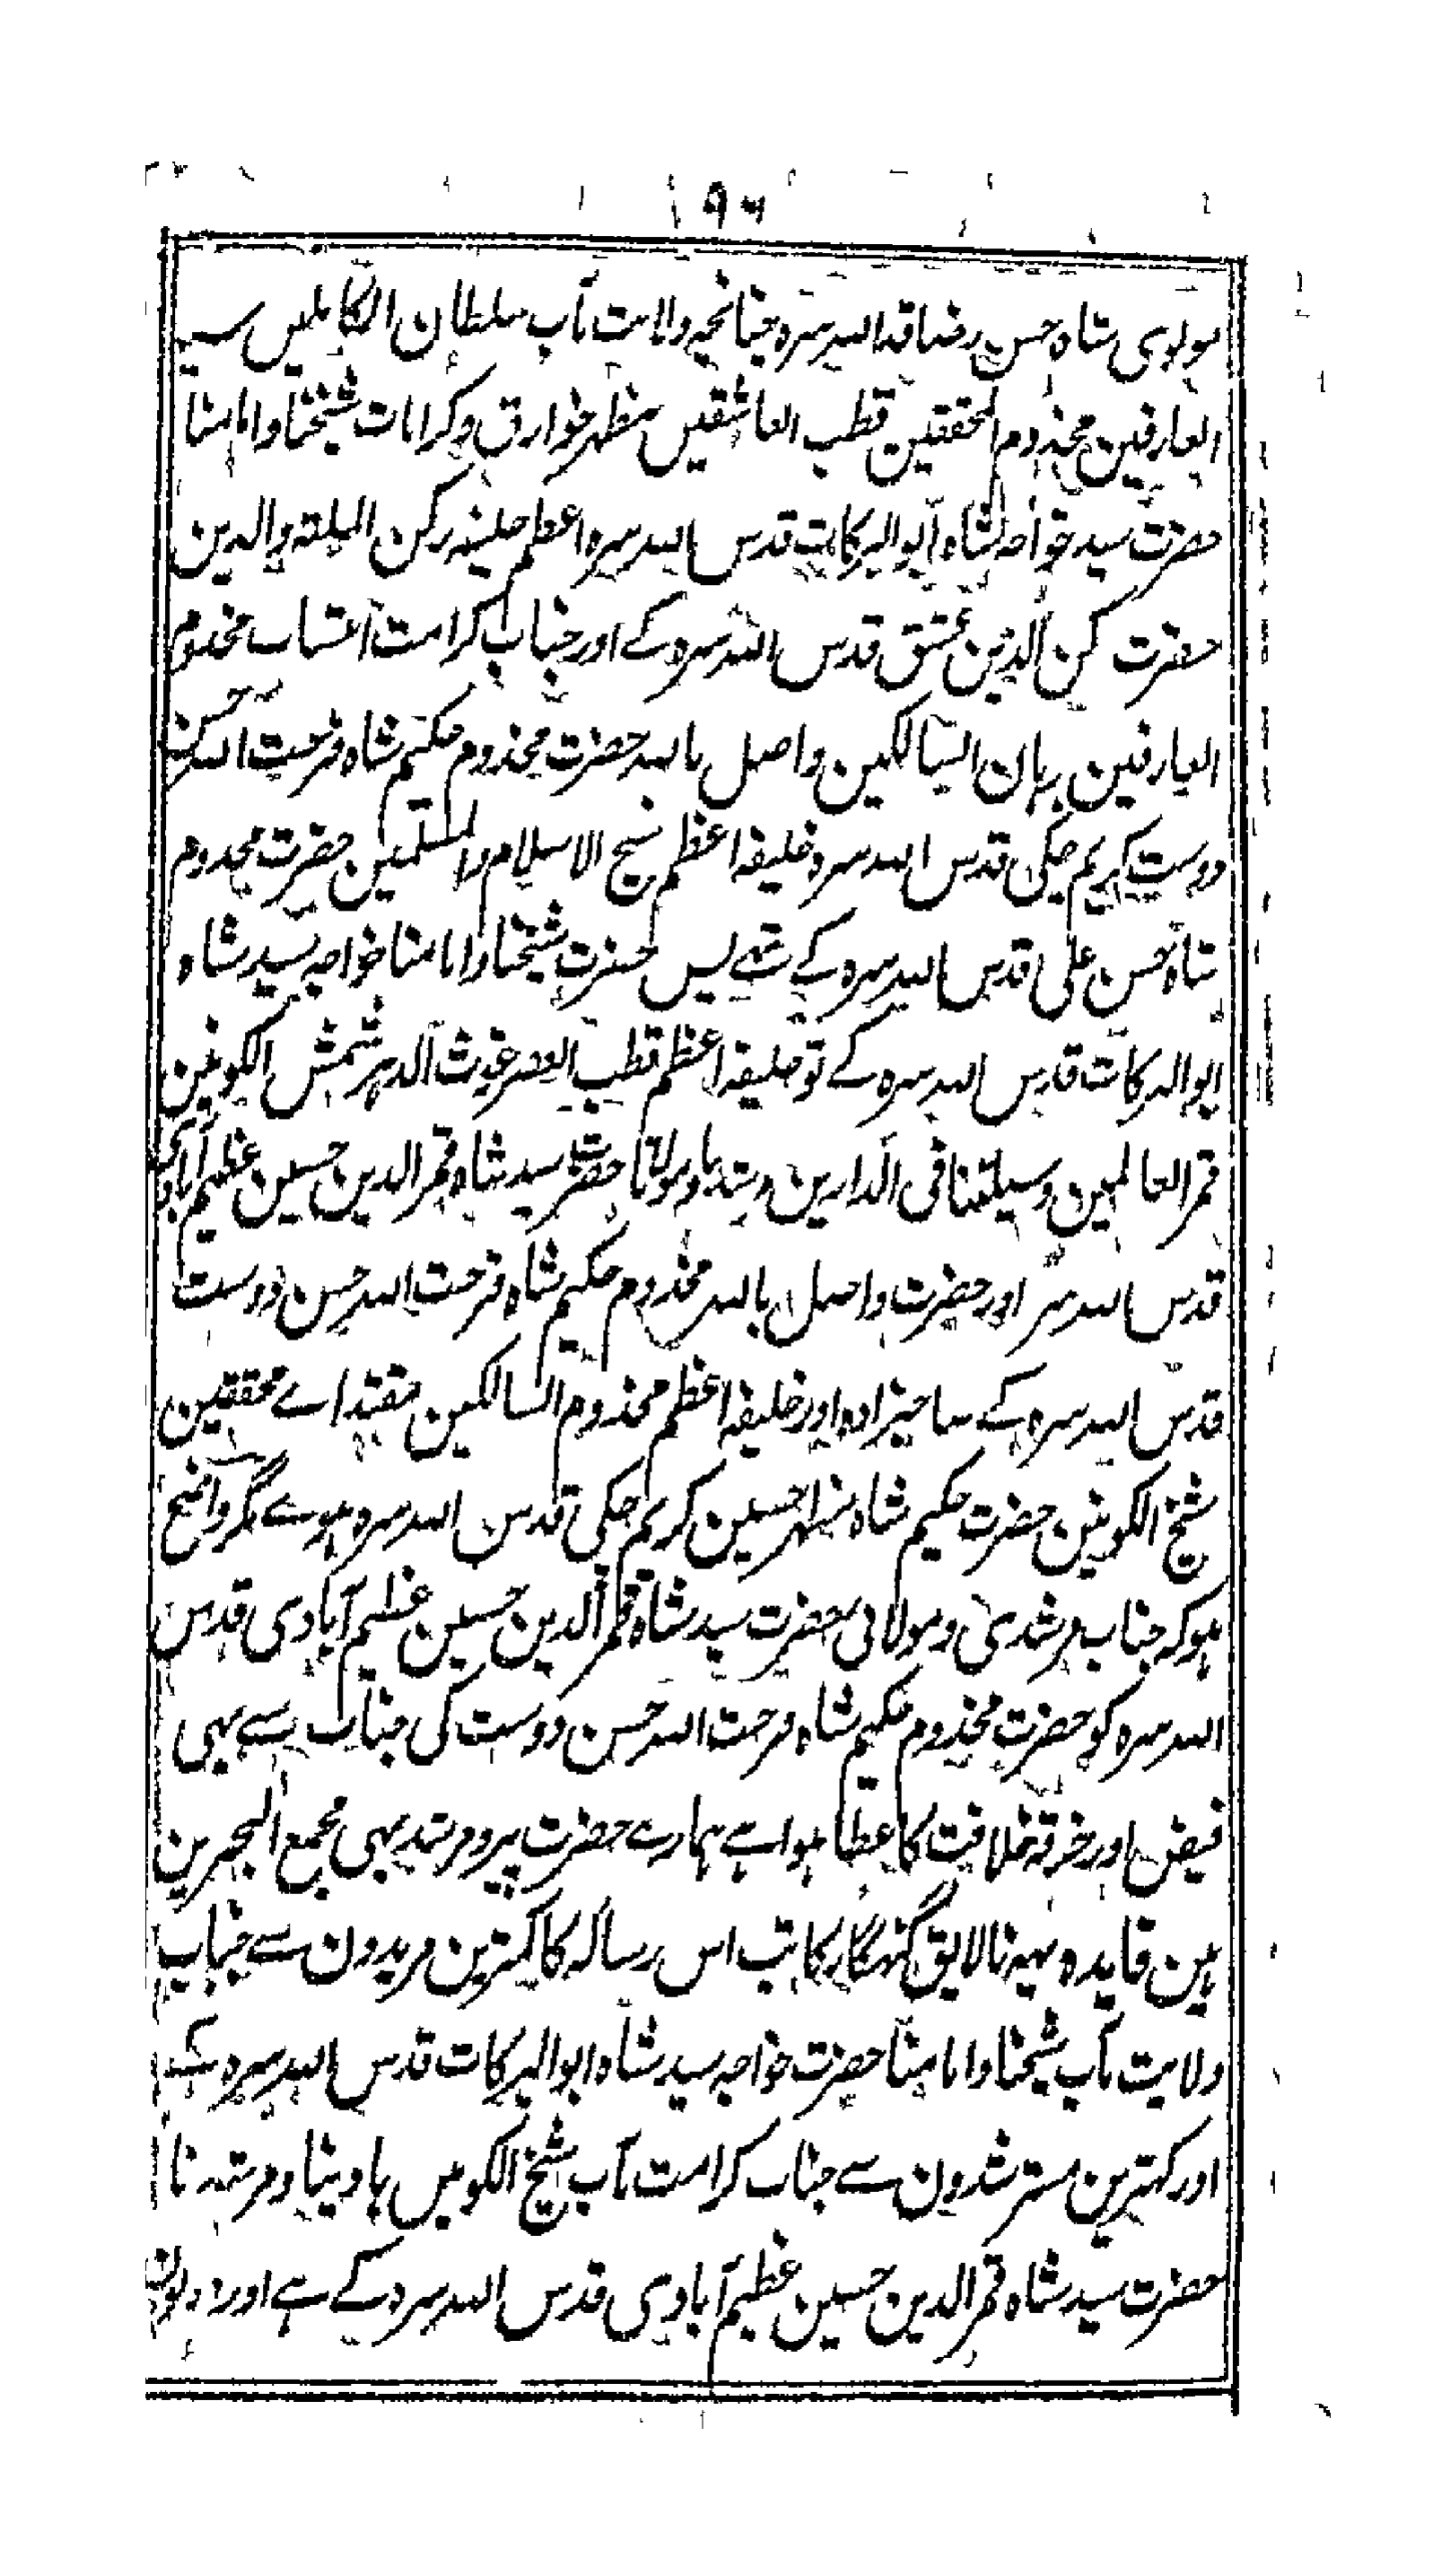 ۱۹۶
مولوی شاہ حسن رضا قدا اللہ سرہ چنانچہ ولایت مآب سلطان الکاملیں سید
العارفین مخدوم المحققین قطب العاشقیں مظہر خوارق و کرامات شیخنا واما منا
حضرت سید خواجہ شاہ ابوالبرکات قدس اللہ سرہ اعظم خلیفہ رکن الملۃ والدین
حضرت رکن الدین عشق قدس اللہ سرہ کے اور جناب کرامت انتساب مخدوم
العارفین برہان السالکین واصل باللہ حضرت مخدوم حکیم شاہ فرحت اللہ حسن
دوست کریم چکی قدس اللہ سرہ خلیفہ اعظم شیخ الاسلام والمسلمین حضرت مخدوم
شاہ حسن علی قدس اللہ سرہ کے تہے پس حضرت شیخنا واما منا خواجہ سید شاہ
ابوالبرکات قدس اللہ سرہ کے تو خلیفہ اعظم قطب العصر غوث الدہر شمس الکونین
قمر العالمین وسیلتنا فی الدارین مرشدنا ومولانا حضرت سید شاہ قمر الدین حسین عظیم آبادی
قدس اللہ سرہ اور حضرت واصل باللہ مخدوم حکیم شاہ فرحت اللہ حسن دوست
قدس اللہ سرہ کے صاحبزادہ اور خلیفہ اعظم مخدوم السالکین مقتداے محققین
شیخ الکونین حضرت حکیم شاہ مظہر حسین کریم چکی قدس اللہ سرہ ہوے مگر واضح
ہو کہ جناب مرشدی ومولائی حضرت سید شاہ قمر الدین حسین عظیم آبادی قدس
اللہ سرہ کو حضرت مخدوم حکیم شاہ فرحت اللہ حسن دوست کی جناب سے بہی
فیض اور خرقہ خلافت کا عطا ہوا ہے ہمارے حضرت پیر و مرشد بہی مجمع البحرین
ہین فایدہ یہہ نالایق گنہگار کاتب اس رسالہ کا کمترین مریدون سے جناب
ولایت مآب شیخنا واما منا حضرت خواجہ سید شاہ ابوالبرکات قدس اللہ سرہ کے
اور کہترین مسترشدون سے جناب کرامت مآب شیخ الکونین ہادینا ومرشدنا
حضرت سید شاہ قمر الدین حسین عظیم آبادی قدس اللہ سرہ کے ہے اور دونون